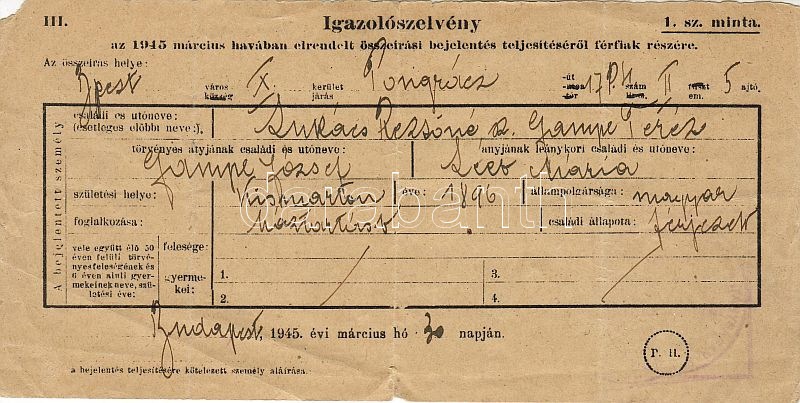 III. Igazolószelvény 1. sz. minta.
az 1945 március havában elrendelt összeírási bejelentés teljesítéséről férfiak részére.
Az összeírás helye:
Bpest város község X. kerület járás Pongrácz -út -utca -tér 17 szám II fszt em. 5 ajtó.
A bejelentett személy
családi és utóneve: (esetleges előbbi neve:), Lukács Rezsőné sz. Gampe Teréz
törvényes atyjának családi és utóneve: anyjának leánykori családi és utóneve:
Gampe József Leeb Mária
születési helye: Kismarton éve: 1896 állampolgársága: magyar
foglalkozása: háztartásb. családi állapota: férjezett
vele együtt élő 50 éven felüli törvényes feleségének és 6 éven aluli gyermekeinek neve, születési éve:
felesége:
gyermekei: 1. 3.
2. 4.
Budapest, 1945. évi március hó 30 napján.
P. H.
a bejelentés teljesítésére kötelezett személy aláírása.
darabanth